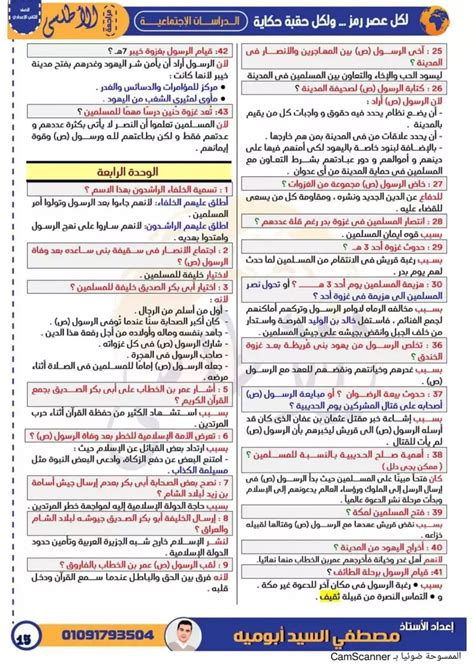 لكل عصر رمز ... ولكل حقبة حكاية
الدراسات الإجتماعية
مراجعة
الأطلسي
الصف
الثاني الإعدادي
25 : آخى الرسول (ص) بين المهاجرين والأنصار فى المدينة ؟
ليسود الحب والإخاء والتعاون بين المسلمين فى المدينة
26 : كتابة الرسول (ص) لصحيفة المدينة ؟
لأن الرسول (ص) أراد :
- أن يضع نظام يحدد فيه حقوق و واجبات كل من يقيم بالمدينة .
- أن يحدد علاقات من بالمدينة بمن هم خارجها .
- بالإضافة لبنود خاصة باليهود فى المدينة تحافظ على
أموالهم وأنفسهم و دور عبادتهم بشرط التعاون مع
المسلمين فى حماية المدينة من أى عدوان .
27 : خاض الرسول (ص) مجموعة من الغزوات ؟
للدفاع عن الدين الجديد ونشره ، ومقاومة كل من يسعى
للقضاء عليه .
28 : انتصار المسلمين فى غزوة بدر رغم قلة عددهم ؟
بسبب قوه ايمان المسلمين .
29 : حدوث غزوة أحد 3 هـ ؟
بسبب رغبة قريش فى الأخذ بثأرهم من المسلمين لما حدث
لهم يوم بدر .
30 : هزيمة المسلمين يوم أحد 3 هـ ؟ أو تحول نصر
المسلمين الى هزيمة فى غزوة أحد ؟
بسبب مخالفه الرماه لاوامر الرسول وتركهم أماكنهم
لجمع الغنائم ، فاستغل خالد بن الوليد الفرصة واستدار
من خلف الجبل وانقض بجيشه على جيش المسلمين .
36 : تخلص الرسول من يهود بنى قريظة بعد غزوة
الخندق ؟
بسبب غدرهم وخيانتهم ونقضهم للعهد مع الرسول (ص) والمسلمين .
37 : حدوث بيعة الرضوان ؟ أو مبايعة الرسول (ص)
أصحابه على قتال المشركين يوم الحديبية ؟
بسبب إشاعة خبر مقتل عثمان بن عفان الذى كان قد
أرسله الرسول (ص) الى قريش ليخبرهم بأن الرسول لم
يأت للقتال .
38 : أهمية صلح الحديبية بالنسبة للمسلمين ؟
( ممكن يجى دلل )
39 : فتح المسلمين لمكة ؟
بسبب نقض قريش عهدها مع الرسول (ص) وقتالها لقبيله
خزاعه .
40 : أخراج اليهود من المدينة ؟
بسبب
41: قيام الرسول برحلة الطائف ؟
- بسبب رغبة الرسول فى مكان آخر للدعوة غير مكة .
- و التماس النصرة من قبيلة ثقيف .
42: قيام الرسول بغزوة خيبر 7هـ ؟
لأن الرسول أراد أن يأمن شر اليهود وغدرهم بفتح مدينة
خيبر لأنها كانت :
• مركز للمؤامرات والدسائس والغدر .
• مأوى لمثيري الشغب من اليهود .
43: تعد غزوة حنين درسًا مهمًا للمسلمين ؟
لأن المسلمين تعلموا أن النصر لا يأتى بكثرة عددهم و
عدتهم فقط و لكن بطاعتهم لله ورسوله (ص) وقوة
إيمانهم .
الوحدة الرابعة
1 : تسمية الخلفاء الراشدون بهذا الاسم ؟
أطلق عليهم الخلفاء: لأنهم جاءوا بعد الرسول وتولوا أمر
المسلمين .
أطلق عليهم الراشدون: لأنهم ساروا على نهج الرسول
واهتدوا بهديه .
2 : اجتماع الأنصار فى سقيفة بنى ساعده بعد وفاة
الرسول (ص) ؟
لاختيار خليفة للمسلمين .
3 : اختيار أبى بكر الصديق خليفة للمسلمين ؟
لأنه :
- أول من أسلم من الرجال .
- كان أكبر الصحابة سنًا عندما تُوفى الرسول (ص) .
- جاهد بنفسه وماله وأول من أجله فى فعل هذا الدين .
- شارك الرسول (ص) فى كل غزواته .
- صاحب الرسول فى الهجرة .
- جعله الرسول (ص) إمامًا للمسلمين فى الصلاة فى
مرضه .
5 : أشار عمر بن الخطاب على أبى بكر الصديق بجمع
القرآن الكريم ؟
بسبب استشهاد الكثير من حفظة القرآن أثناء حرب
المرتدين .
6 : تعرض الأمة الإسلامية للخطر بعد وفاة الرسول (ص) ؟
بسبب ارتداد بعض القبائل عن الإسلام حيث :
- امتنع البعض عن دفع الزكاة، وأدعى البعض النبوة مثل
مسيلمة الكذاب .
7 : نصح بعض الصحابة أبى بكر بعدم إرسال جيش أسامة
بن زيد لبلاد الشام ؟
بسبب حاجة الدولة الإسلامية إليه لمواجهة خطر المرتدين .
8 : إرسال الخليفة أبو بكر الصديق جيوشه لبلاد الشام
والعراق ؟
لنشر الإسلام خارج شبه الجزيرة العربية وتأمين حدود
الدولة الإسلامية .
9 : لقب عمر بن الخطاب بالفاروق ؟
لأنه كان يفرق بين الحق والباطل عندما يحكم بين
الأفراد .
إعداد الأستاذ
مصطفي السيد أبوميه
01091793504
15
الممسوحة ضوئيا بـ CamScanner